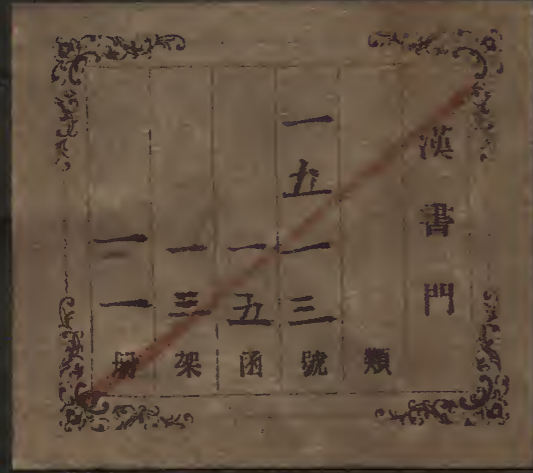 漢書門
類
一五一三號
一五函
一三架
一一册